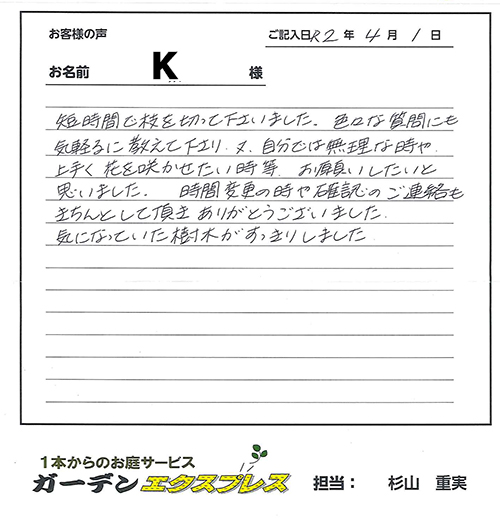 お客様の声
ご記入日R2年4月1日
お名前 K 様
短時間で枝を切って下さいました。色々な質問にも
気軽るに教えて下さり、又、自分では無理な時や、
上手く花を咲かせたい時等、お願いしたいと
思いました。 時間変更の時や確認のご連絡も
きちんとして頂きありがとうございました。
気になっていた樹木がすっきりしました。
1本からのお庭サービス
ガーデンエクスプレス 担当： 杉山 重実